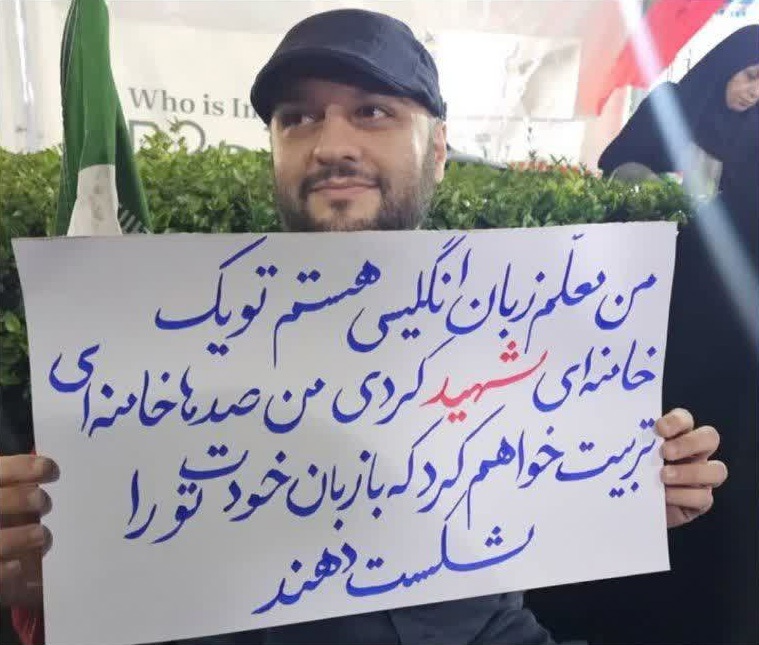 Who is
من معلّم زبان انگلیسی هستم تو یک
خامنه‌ای شهید کردی من صدها خامنه‌ای
تربیت خواهم کرد که با زبان خودت تو را
شکست دهند